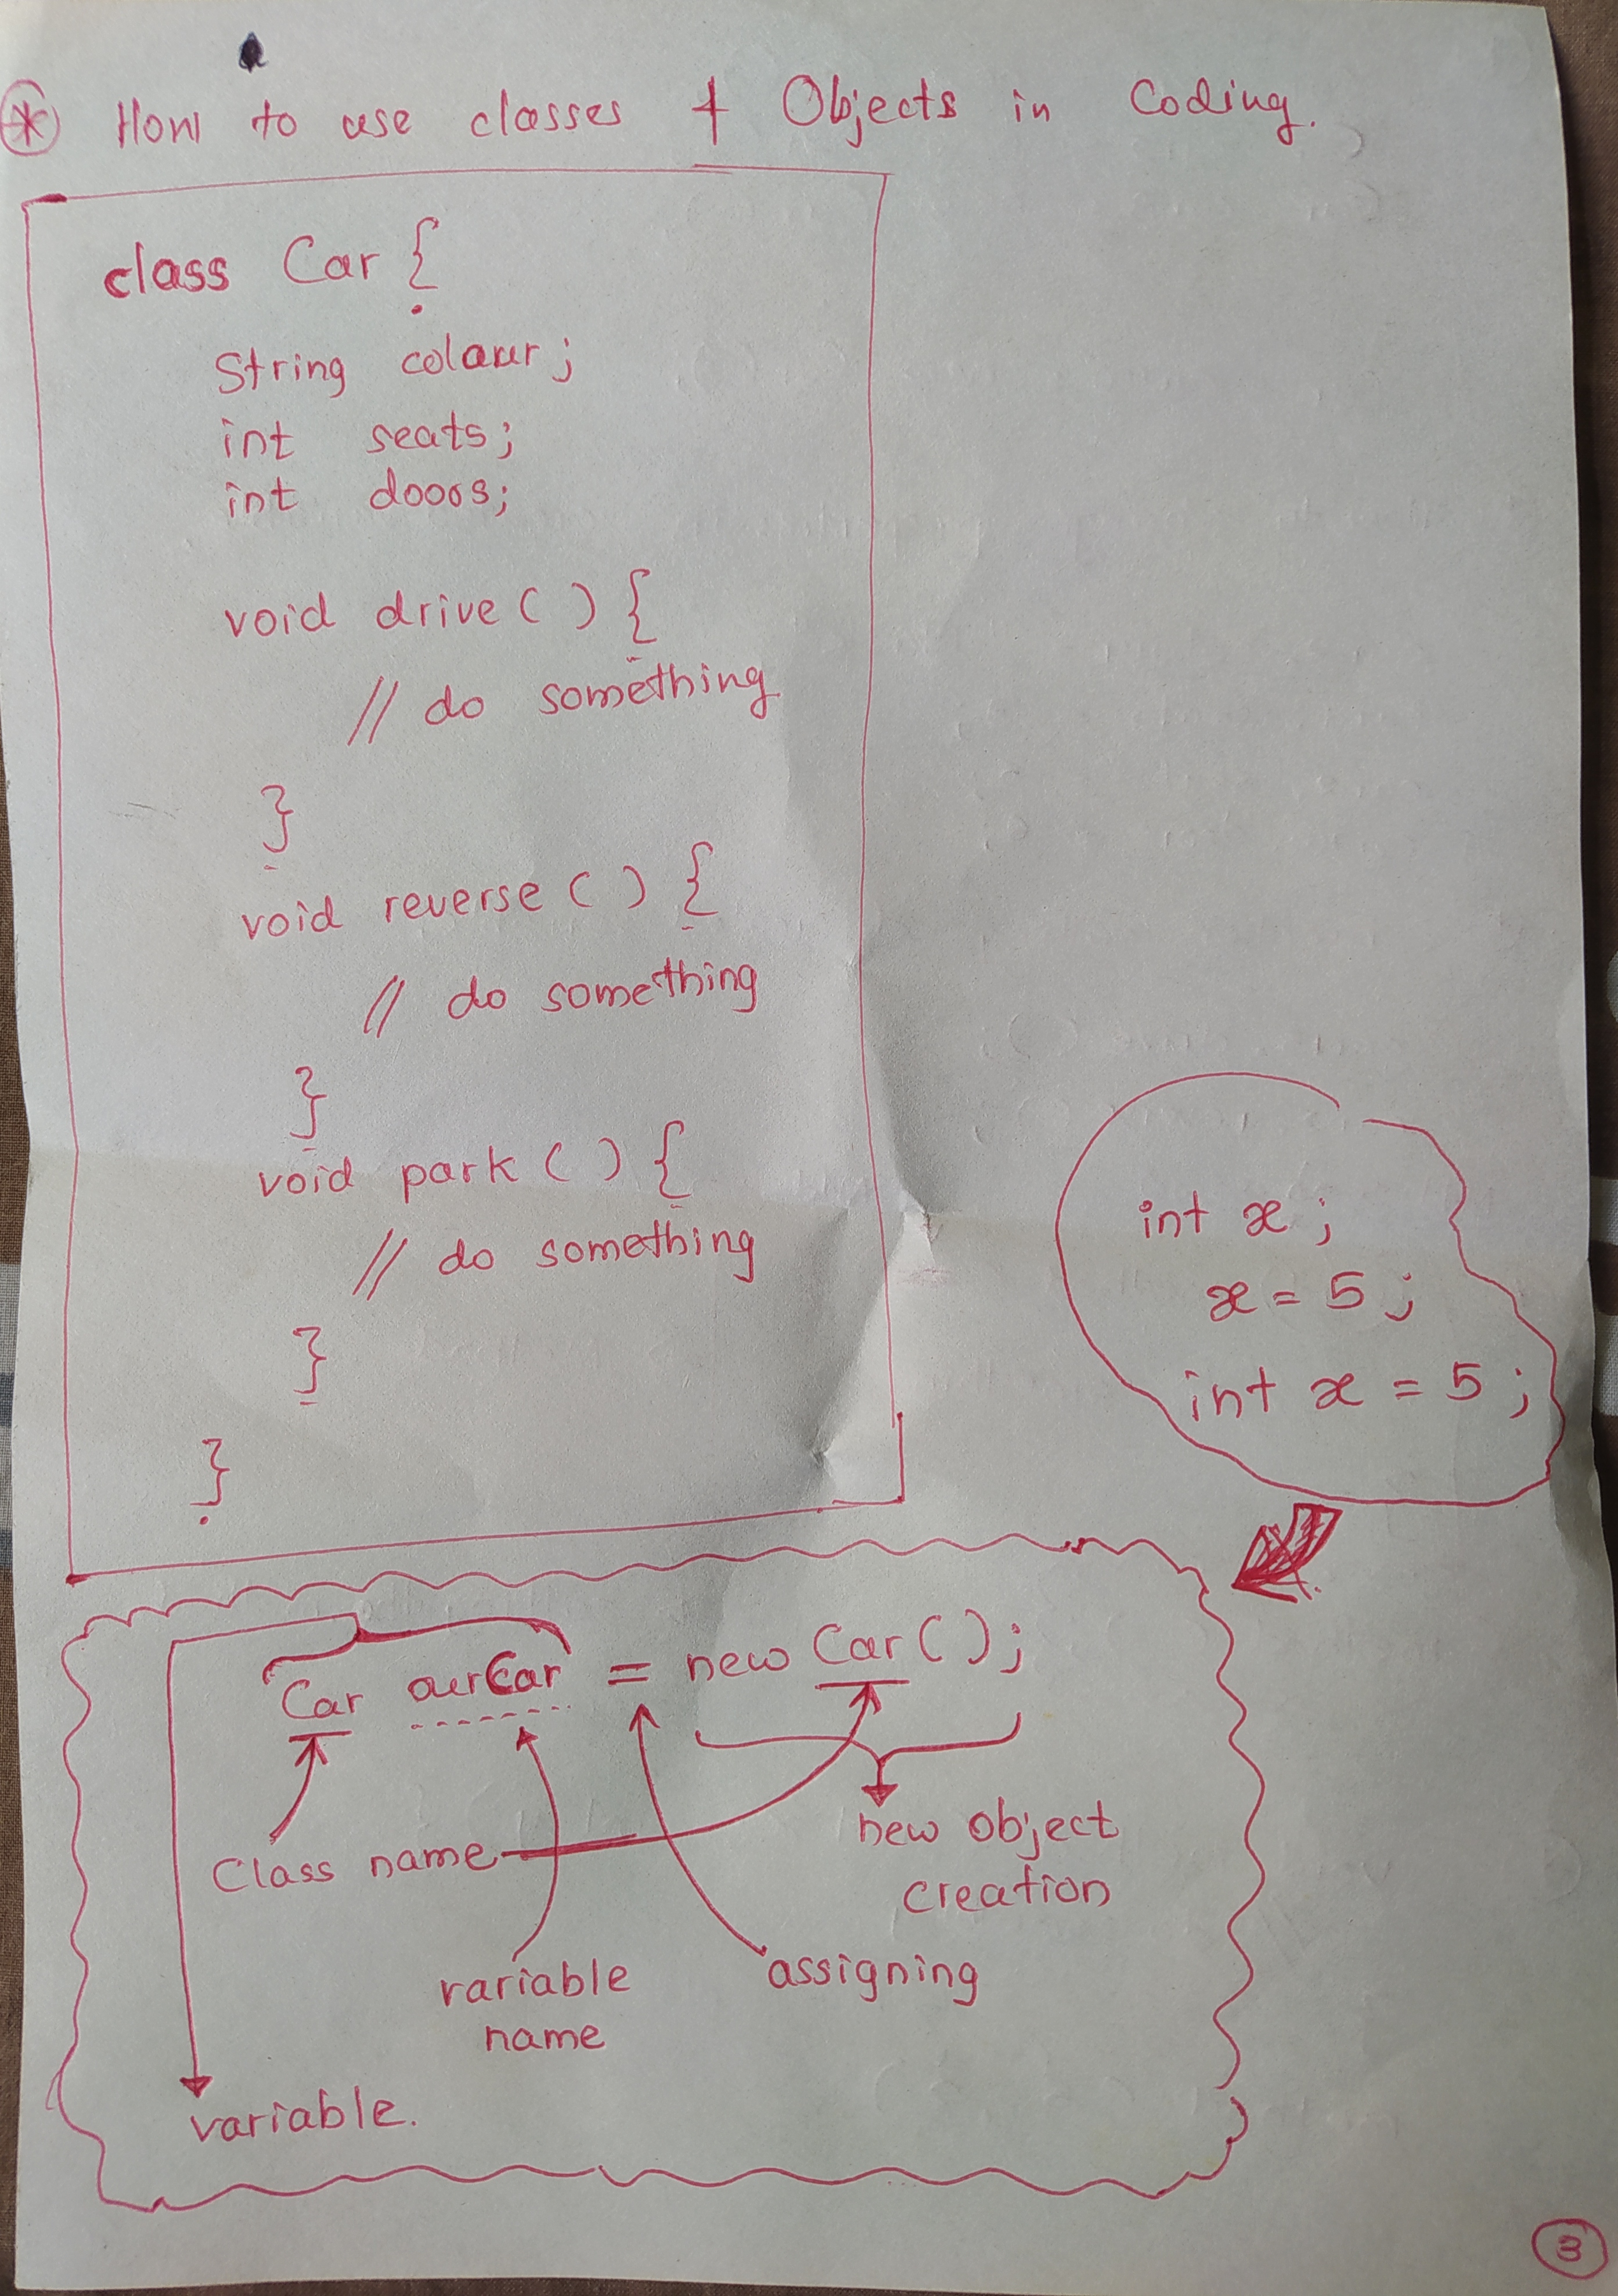 * How to use classes & Objects in Coding.
class Car {
String colour;
int seats;
int doors;
void drive ( ) {
// do something
}
void reverse ( ) {
// do something
}
void park ( ) {
// do something
}
}
int x ;
x = 5 ;
int x = 5 ;
Car ourCar = new Car ( ) ;
Class name
new object
creation
variable
name
assigning
variable.
3